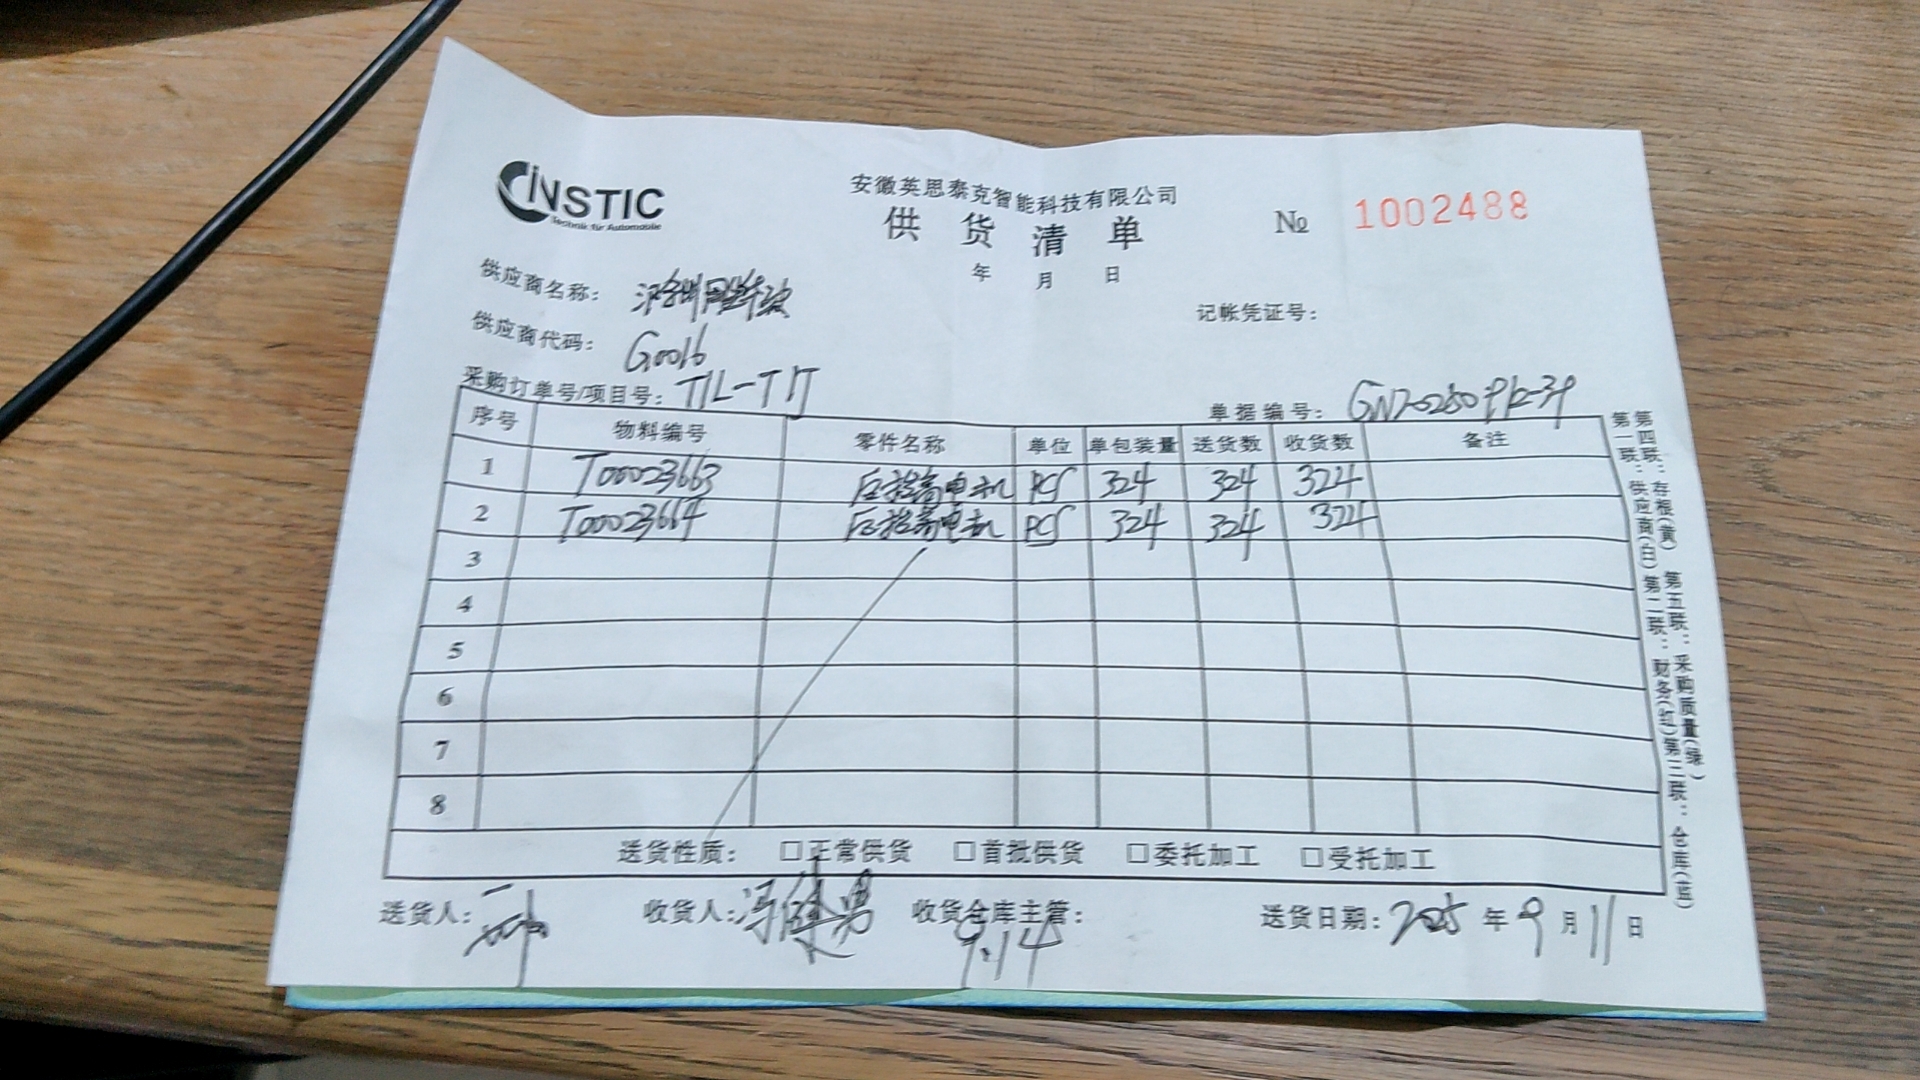 INSTIC
Technik für Automobile
安徽英思泰克智能科技有限公司
供货清单
№ 1002488
年 月 日
供应商名称: 滁州
记帐凭证号:
供应商代码: G0016
采购订单号/项目号: T1L-T1T
单据编号:
序号 物料编号 零件名称 单位 单包装量 送货数 收货数 备注
1 T00023663 电机 PCS 324 324 324
2 T00023664 电机 PCS 324 324 324
3
4
5
6
7
8
送货性质: □正常供货 □首批供货 □委托加工 □受托加工
送货人: 收货人:冯健男 收货仓库主管: 送货日期: 2025 年 9 月 11 日
9.14
第一联:供应商(白) 第二联:财务(红) 第三联:仓库(蓝)
第四联:存根(黄) 第五联:采购质量(绿)